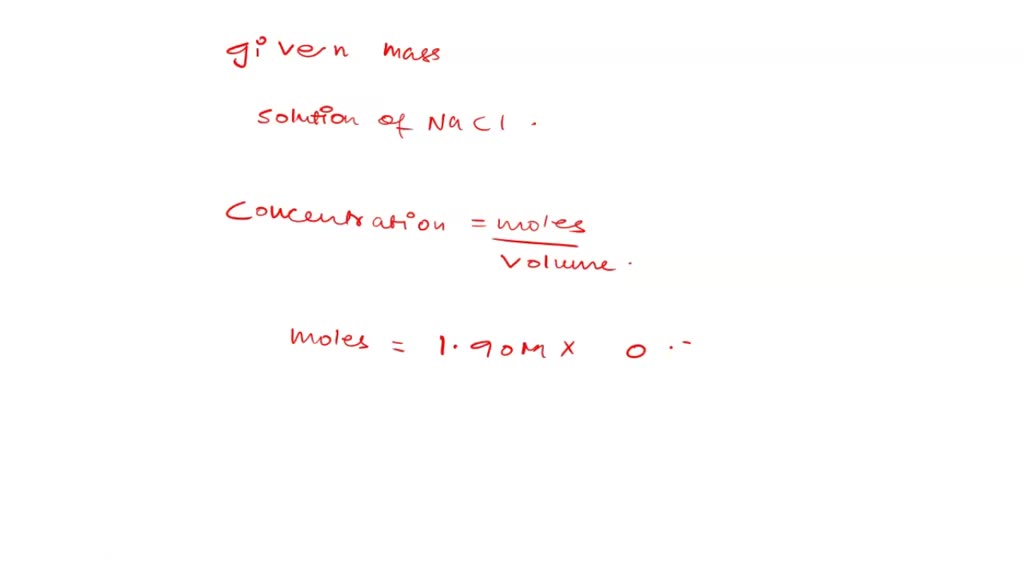 given mass
solution of NaCl .
Concentration = moles
volume .
moles = 1.90M x 0 .-